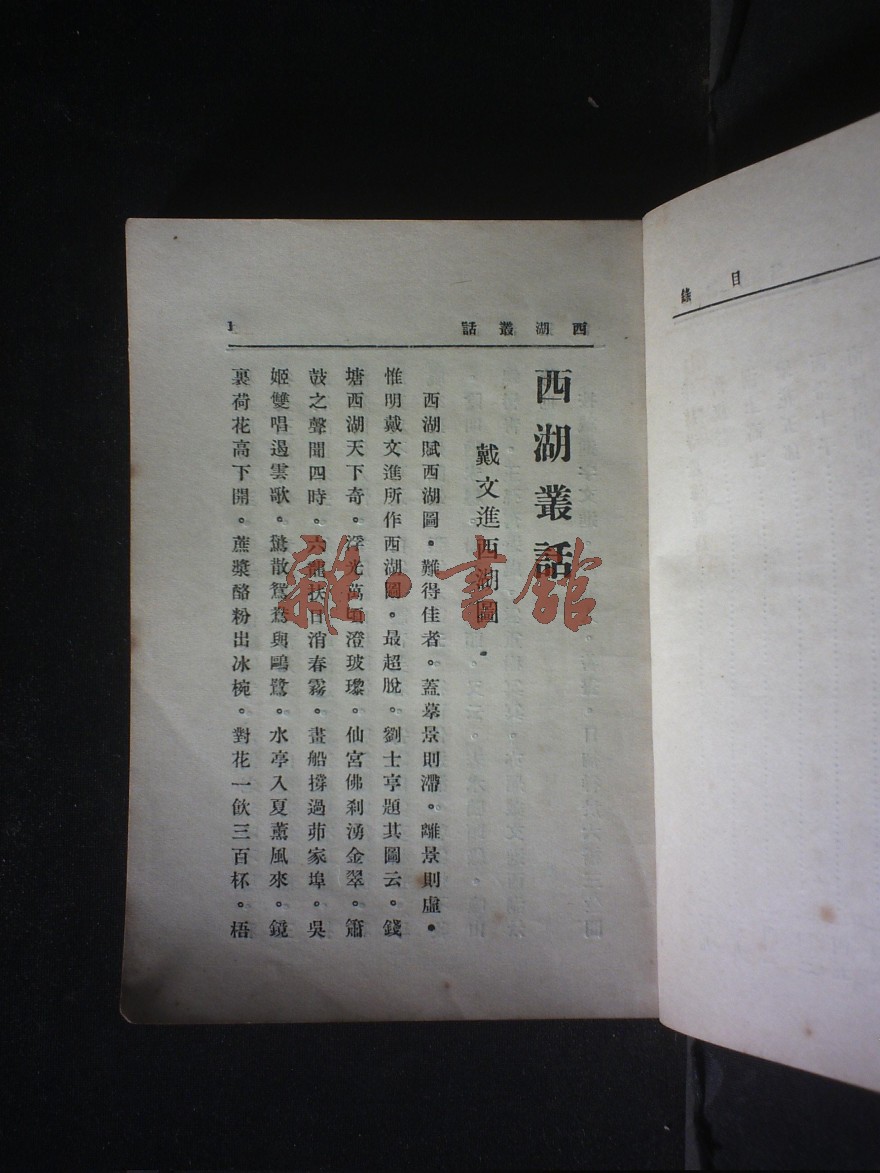 目錄
西湖叢話
1
西湖叢話
戴文進西湖圖
西湖賦西湖圖。難得佳者。蓋摹景則滯。離景則虛。
惟明戴文進所作西湖圖。最超脫。劉士亨題其圖云。錢
塘西湖天下奇。浮光萬頃澄玻瓈。仙宮佛刹湧金翠。簫
鼓之聲聞四時。六龍扶日消春霧。畫船撐過茆家埠。吳
姬雙唱遏雲歌。驚散鴛鴦與鷗鷺。水亭入夏薰風來。鏡
裏荷花高下開。蔗漿酪粉出冰椀。對花一飲三百杯。梧
雜·書館